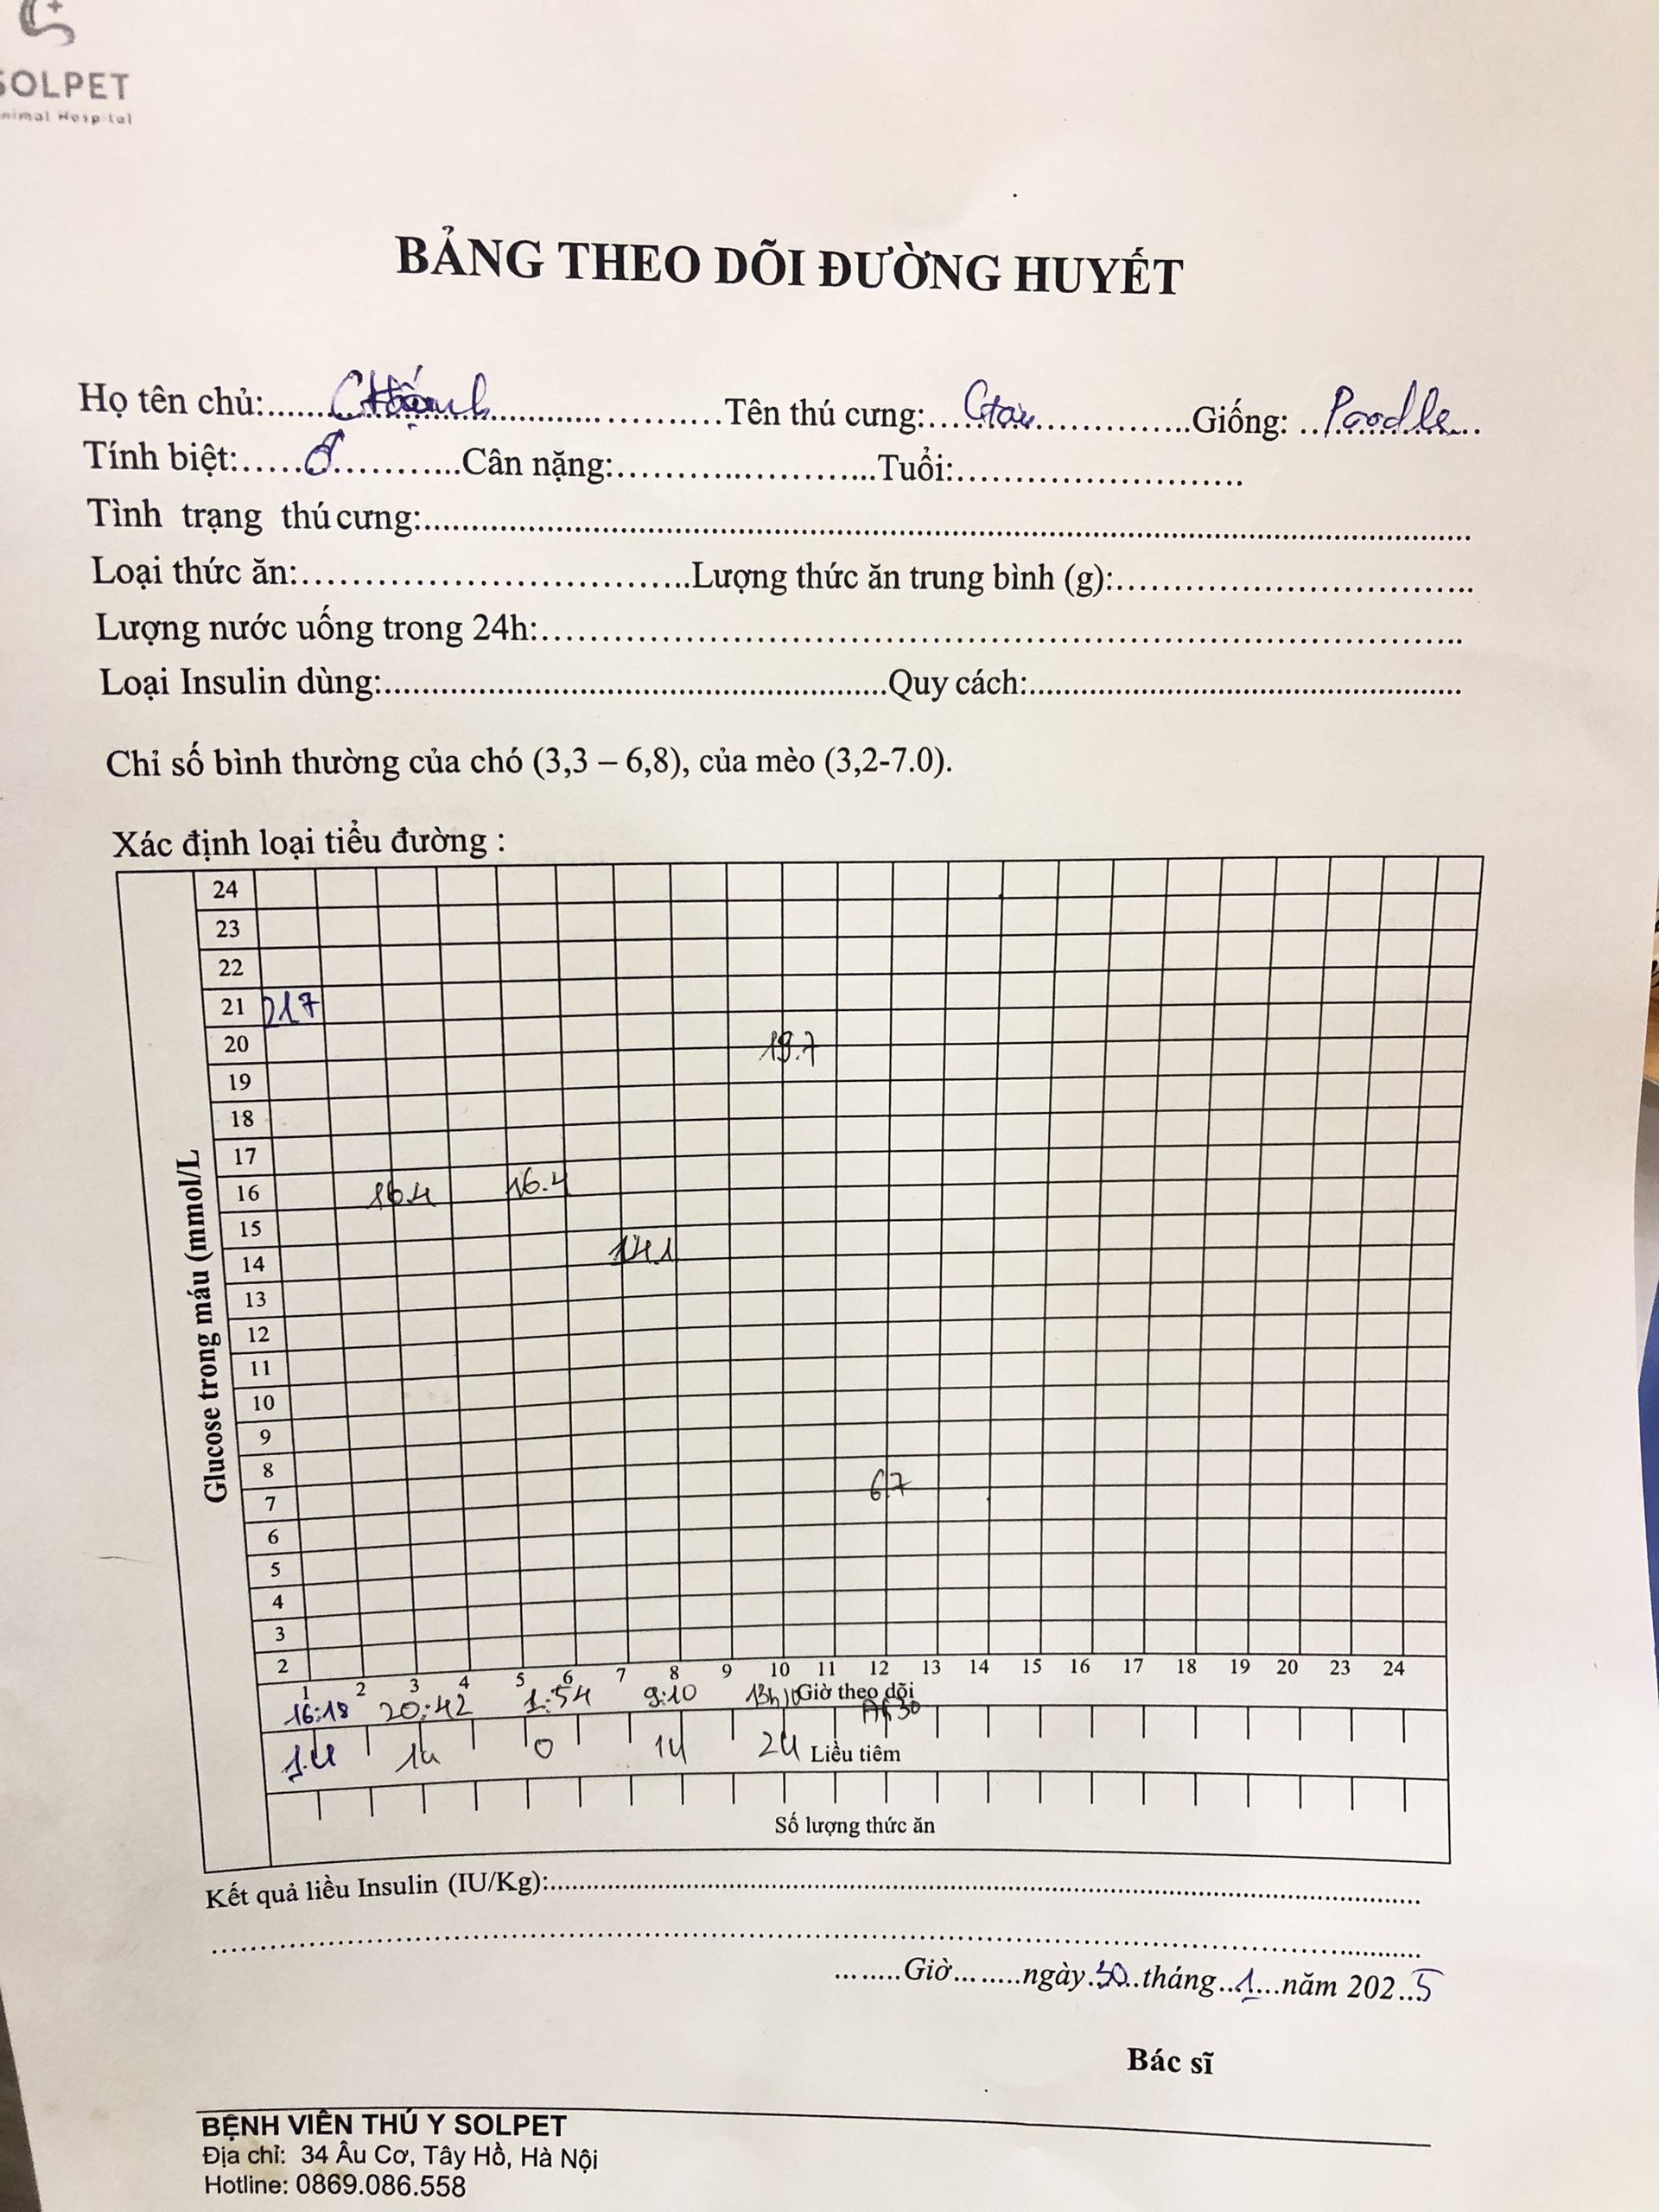 SOLPET
Animal Hospital
BẢNG THEO DÕI ĐƯỜNG HUYẾT
Họ tên chủ:..........Tên thú cưng:..........Giống: ..Poodle..
Tính biệt:.....♂..........Cân nặng:..........Tuổi:..........
Tình trạng thú cưng:..........
Loại thức ăn:..........Lượng thức ăn trung bình (g):..........
Lượng nước uống trong 24h:..........
Loại Insulin dùng:..........Quy cách:..........
Chỉ số bình thường của chó (3,3 – 6,8), của mèo (3,2-7.0).
Xác định loại tiểu đường :
Glucose trong máu (mmol/L
24
23
22
21 217
20 19.7
19
18
17
16 16.4 16.4
15
14 14.1
13
12
11
10
9
8
7 6.7
6
5
4
3
2
1 2 3 4 5 6 7 8 9 10 11 12 13 14 15 16 17 18 19 20 23 24
16:18 20:42 1:54 9:10 13h10 Giờ theo dõi
1u 1u 0 1u 2u Liều tiêm
Số lượng thức ăn
Kết quả liều Insulin (IU/Kg):..........
........Giờ.........ngày.30..tháng..1...năm 202..5
Bác sĩ
BỆNH VIÊN THÚ Y SOLPET
Địa chỉ: 34 Âu Cơ, Tây Hồ, Hà Nội
Hotline: 0869.086.558